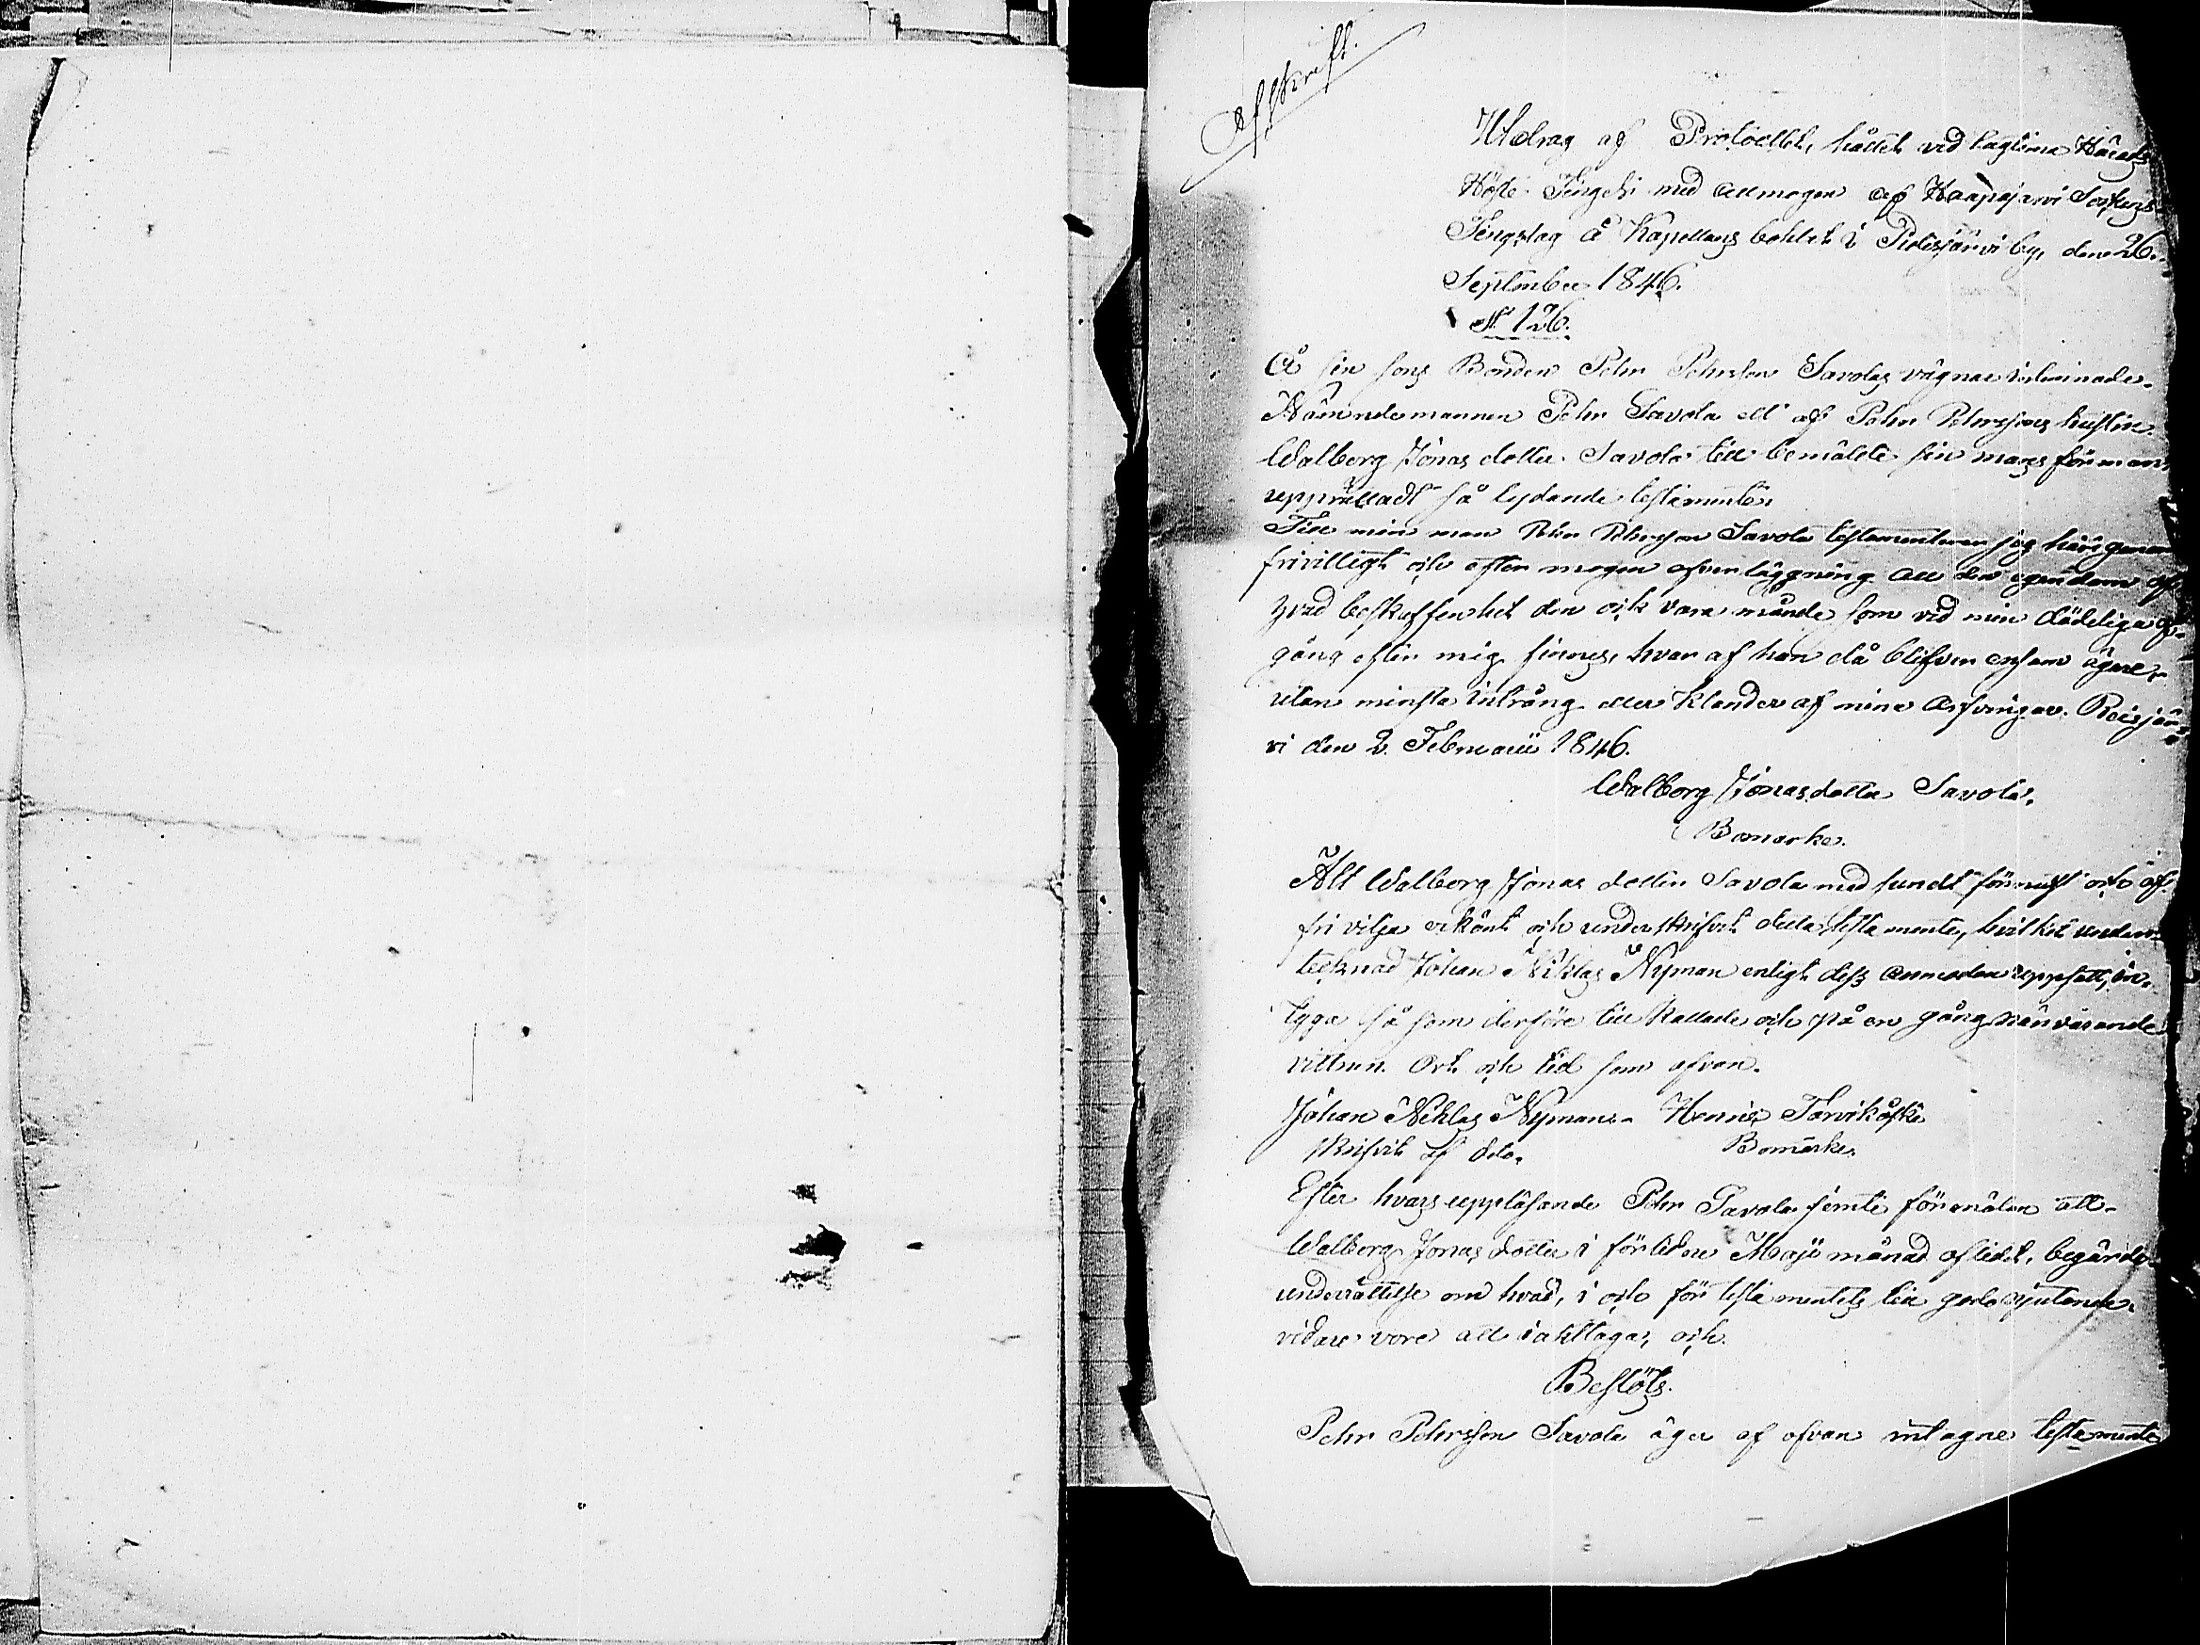 Afskrift.
Utdrag af Protocollet, hållet vid lagtima Härads
Höste Tinget med allmogen af Haapajärvi Sockens
Tingslag å Kapellans bohlet i Pidisjärvi by, den 26.
September 1846.
§ 126.
Å sin sons Bonden Pehr Pehrsson Savolas vägnar inlemnade
Nämndemannen Pehr Savola ett af Pehr Pehrssons hustru
Walborg Jonasdotter Savola till bemälte sin mans förmon
upprättadt så lydande testamente:
Till min man Pehr Pehrsson Savola testamenterar jag härigenom
frivilligt och efter mogen öfverläggning all den egendom af
hvad beskaffenhet den och vara månde som vid min dödeliga af-
gång efter mig finnes, hvar af han då blifver ensam ägare,
utan minsta intrång eller klander af mina arfvingar. Reisjär-
vi den 2 Februarii 1846.
Walborg Jonasdotter Savola.
Bomärke.
Att Walborg Jonasdotter Savola med sundt förnuft och af
fri vilja erkänt och underskrifvit detta testamente, hvilket under-
tecknad Johan Niklas Nyman enligt dess anmodan uppsatt, in-
tyga så som derföre till kallade och på en gång närvarande
vittnen. Ort och tid som ofvan.
Johan Niklas Nyman. Henric Torvikoski
skrifvit af dito. Bomärke.
Efter hvars uppläsande Pehr Savola jemte förmälan att
Walborg Jonasdotter i förliden Maji månad aflidit, begärde
underrättelse om hvad, i och för testamentets till godo njutande
vidare vore att iakttaga; och
Beslöts.
Pehr Pehrsson Savola äger af ofvan intagne testamente